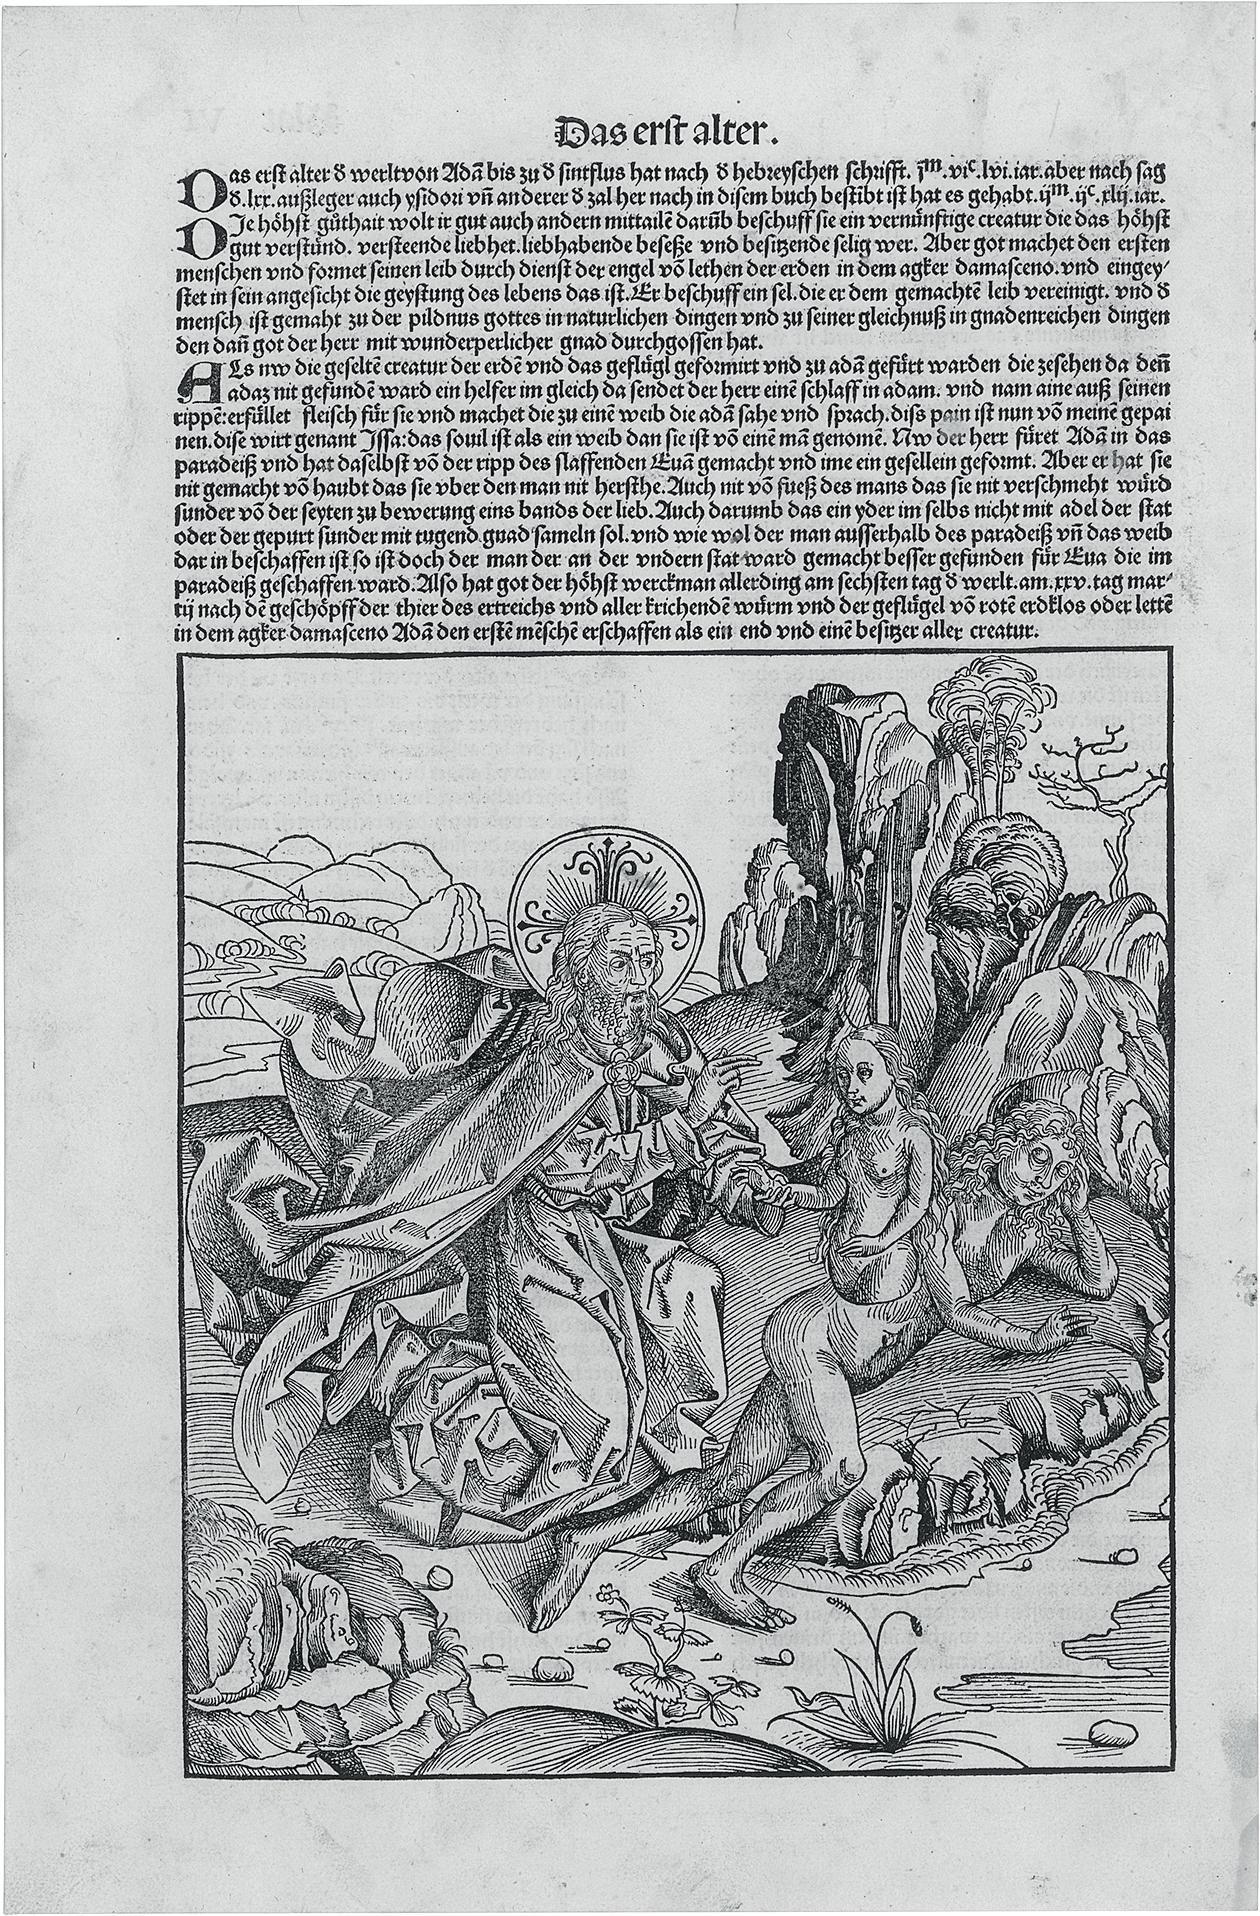 Das erst alter.
Das erst alter d̕ werlt von Adā bis zu d̕ sintflus hat nach d̕ hebreyschen schrifft. jᵐ.viᶜ.lvi.iar. aber nach sag
d̕.lxx. außleger auch ysidori vn̄ anderer d̕ zal her nach in disem buch bestībt ist hat es gehabt. ijᵐ.ijᶜ.xlij.iar.
DJe höhst gůthait wolt ir gut auch andern mittailē darūb beschuff sie ein vernünftige creatur die das höhst
gut verstünd. versteende liebhet. liebhabende beseße vnd besitzende selig wer. Aber got machet den ersten
menschen vnd formet seinen leib durch dienst der engel vō lethen der erden in dem agker damasceno. vnd eingey/
stet in sein angesicht die geystung des lebens das ist. Er beschuff ein sel. die er dem gemachtē leib vereinigt. vnd d̕
mensch ist gemaht zu der pildnus gottes in naturlichen dingen vnd zu seiner gleichnuß in gnadenreichen dingen
den dan̄ got der herr mit wunderperlicher gnad durchgossen hat.
ALs nw die geseltē creatur der erdē vnd das geflügl geformirt vnd zu adā gefürt warden die zesehen da den̄
adaz nit gefundē ward ein helfer im gleich da sendet der herr einē schlaff in adam. vnd nam aine auß seinen
rippē: erfüllet fleisch für sie vnd machet die zu einē weib die adā sahe vnd sprach. diss pain ist nun vō meinē gepai
nen. dise wirt genant Jssa: das souil ist als ein weib dan sie ist vō einē mā genomē. Nw der herr füret Adā in das
paradeiß vnd hat daselbst vō der ripp des slaffenden Euā gemacht vnd ime ein gesellein geformt. Aber er hat sie
nit gemacht vō haubt das sie vber den man nit hersche. Auch nit vō fueß des mans das sie nit verschmeht würd
sunder vō der seyten zu bewerung eins bands der lieb. Auch darumb das ein yder im selbs nicht mit adel der stat
oder der gepurt sunder mit tugend. gnad sameln sol. vnd wie wol der man ausserhalb des paradeiß vn̄ das weib
dar in beschaffen ist so ist doch der man der an der vndern stat ward gemacht besser gefunden für Eua die im
paradeiß geschaffen ward. Also hat got der höhst werckman allerding am sechsten tag d̕ werlt. am. xxv. tag mar/
tij nach dē geschöpff der thier des ertreichs vnd aller krichendē würm vnd der geflügel vō rotē erdklos oder lettē
in dem agker damasceno Adā den erstē mēschē erschaffen als ein end vnd einē besitzer aller creatur.